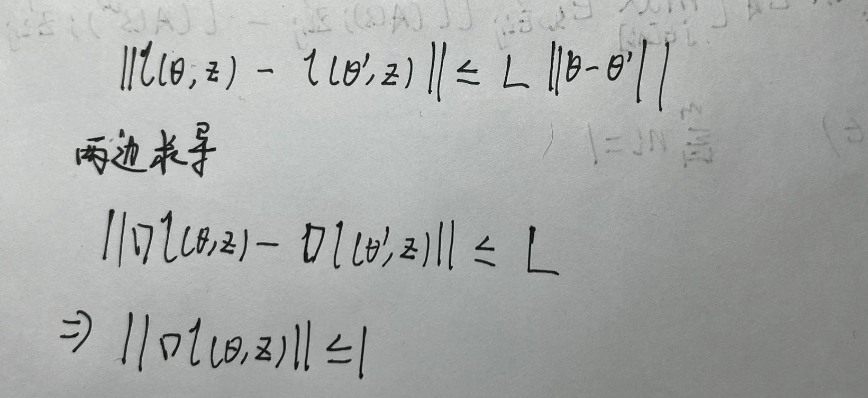 ||l(θ,z) - l(θ',z)|| ≤ L ||θ-θ'||
两边求导
||∇l(θ,z) - ∇l(θ',z)|| ≤ L
⇒ ||∇l(θ,z)|| ≤ l